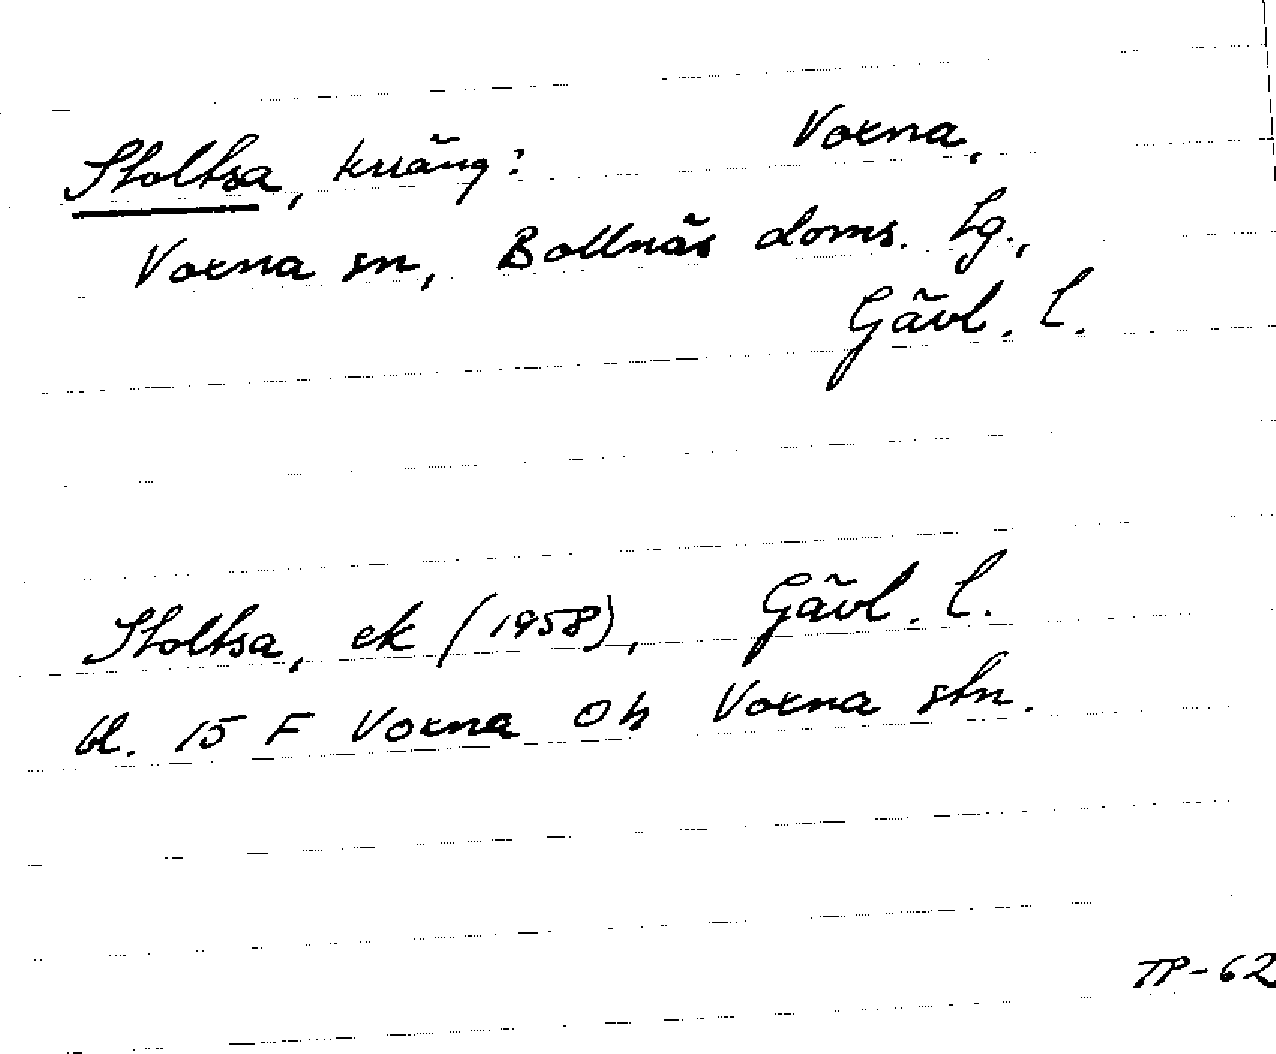 Stoltsa, Voxna,
Voxna sn, Bollnäs doms. tg.,
Gävl. l.
Stoltsa, ek (1958), Gävl. l.
bl. 15 F Voxna Voxna stn.
TP-62